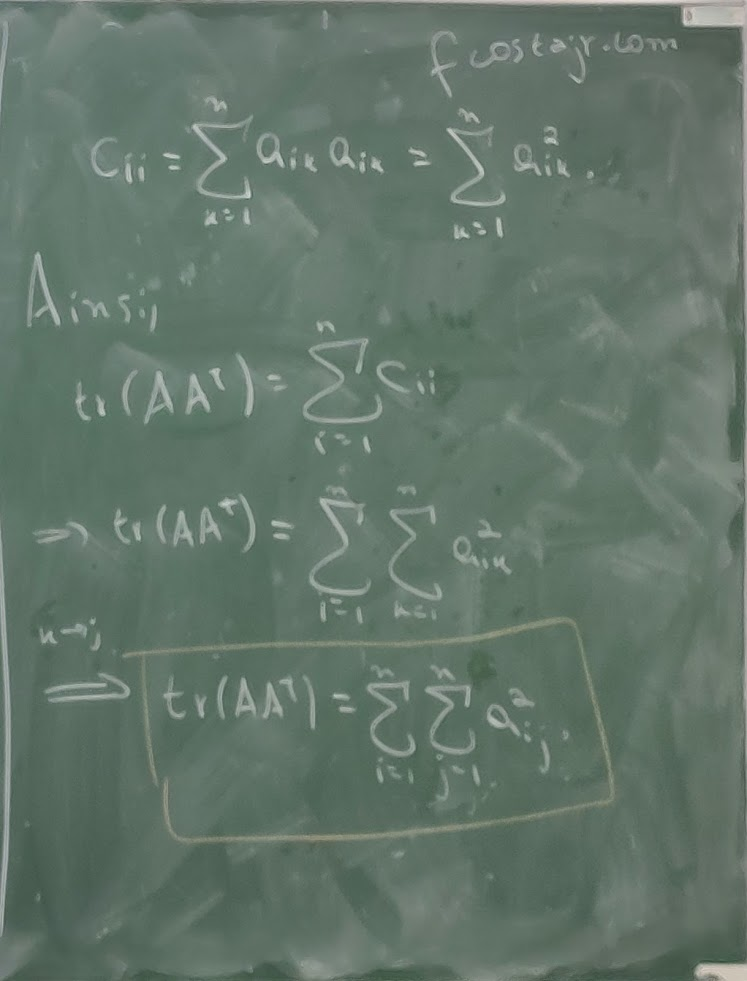 fcostajr.com
C_{ii} = \sum_{k=1}^{n} a_{ik} a_{ik} = \sum_{k=1}^{n} a_{ik}^2.
Ainsi,
tr(AA^T) = \sum_{i=1}^{n} C_{ii}
\Rightarrow tr(AA^T) = \sum_{i=1}^{n} \sum_{k=1}^{n} a_{ik}^2
k \to j
\Longrightarrow tr(AA^T) = \sum_{i=1}^{n} \sum_{j=1}^{n} a_{ij}^2.